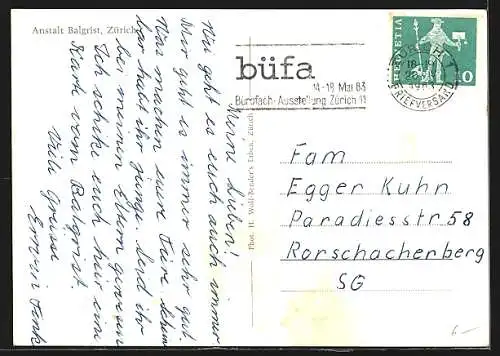 Anstalt Balgrist, Zürich
Meine Lieben!
Wie geht es euch auch immer
Mir geht es immer sehr gut.
Was machen eure Tiere. Schon
bar habt ihr junge. Und ihr
bei meinen Eltern gewesen
Ich schike euch hier eine
Karte vom Balgrist.
Viele Grüsse
Erwin Fenk
Phot. H. Wolf-Bender's Erben, Zürich
büfa
14-18 Mai 63
Bürofach-Ausstellung Zürich 11
HELVETIA
10
ZÜRICH
18-19
BRIEFVERSAND
Fam
Egger Kuhn
Paradiesstr 58
Rorschacherberg
SG
6.-